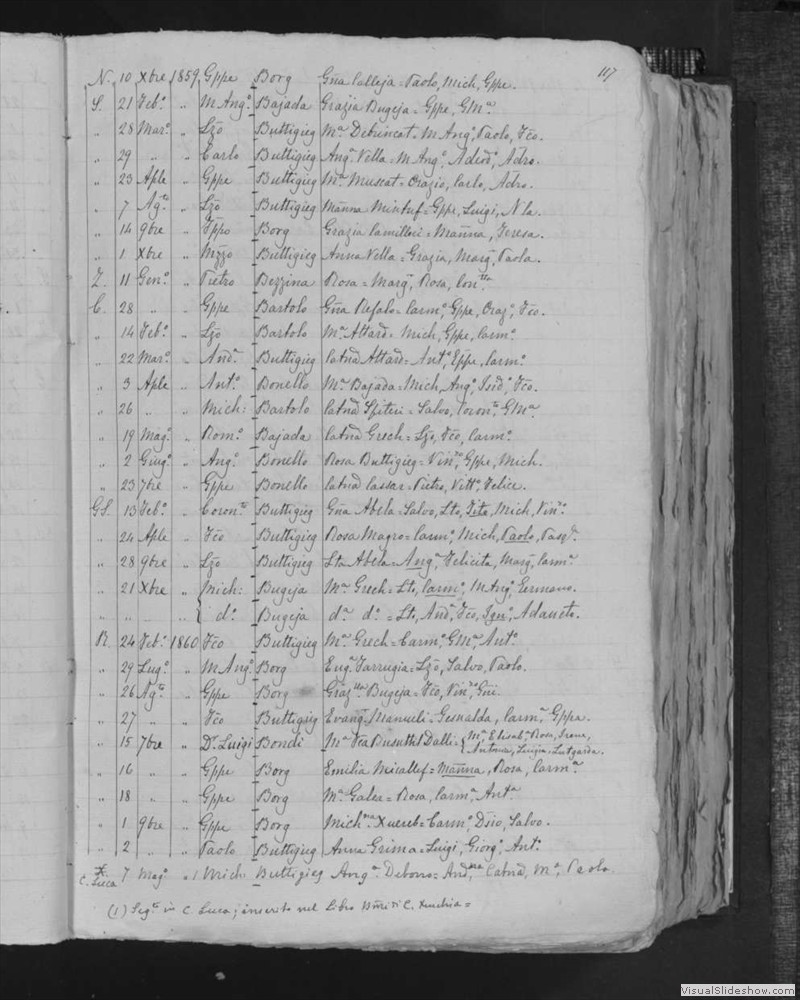 117
N. 10 Xbre 1859 Gppe Borg Gña Calleja = Paolo, Mich, Gppe.
S. 21 Feb.º " M Ang.º Bajada Grazia Bugeja = Gppe, GMª
" 28 Mar.º " Lz̃o Buttigieg Mª Debrincat = M Ang.º, Paolo, Fc̃o.
" 29 " " Carlo Buttigieg Ang.ª Vella = M Ang.º, Adeod.º, Adro.
" 23 Aple " Gppe Buttigieg Mª Muscat = Orazio, Carlo, Adro.
" 7 Ag.to " Lz̃o Buttigieg Mãnna Mintuf = Gppe, Luigi, N'la.
" 14 9bre " Fp̃po Borg Grazia Camilleri = Mãnna, Teresa.
" 1 Xbre " Nz̃zo Buttigieg Anna Vella = Grazia, Marg.ª, Paola.
Z. 11 Gen.º " Pietro Bezzina Rosa = Marg.ª, Rosa, Con.tta
C. 28 " " Gppe Bartolo Gña Refalo = Carm.º, Gppe, Oraz.º, Fc̃o.
" 14 Feb.º " Lz̃o Bartolo Mª Attard = Mich, Gppe, Carm.º
" 22 Mar.º " And.ª Buttigieg Catña Attard = Ant.º, Gppe, Carm.º
" 3 Aple " Ant.º Bonello Mª Bajada = Mich, Ang.º, Isid.º, Fc̃o.
" 26 " " Mich: Bartolo Catña Spiteri = Salvo, Coron.to, GMª
" 19 Mag.º " Rom.º Bajada Catña Grech = Lz̃o, Fc̃o, Carm.º
" 2 Giug.º " Ang.º Bonello Rosa Buttigieg = Vin.zo, Gppe, Mich.
" 23 7bre " Gppe Bonello Catña Cassar = Pietro, Vitt.º, Felice.
GS. 13 Feb.º " Coron.to Buttigieg Gña Abela = Salvo, Sto, Tito, Mich, Vin.º
" 24 Aple " Fc̃o Buttigieg Rosa Magro = Carm.º, Mich, Paolo, Pasq.e
" 28 9bre " Lz̃o Buttigieg Sta Abela = Ang.ª, Felicita, Marg.ª, Carm.ª
" 21 Xbre " Mich: Bugeja Mª Grech = Sto, Carm.º, M Ang.º, Germano.
" " " " { d.º Bugeja d.ª d.º = Sto, And.ª, Fc̃o, Ign.º, Adaucto.
R. 24 Feb.º 1860 Fc̃o Buttigieg Mª Grech = Carm.º, GMª, Ant.º
" 29 Lug.º " M Ang.º Borg Eug.ª Farrugia = Lz̃o, Salvo, Paolo.
" 26 Ag.to " Gppe Borg Graz.lla Bugeja = Fc̃o, Vin.zo, Gñi.
" 27 " " Fc̃o Buttigieg Evang.ª Manueli = Gesualda, Carm.ª, Gppa.
" 15 7bre " Dr. Luigi Bondi Mª Fca Busuttil Dalli = { Mª Elisab.ª, Rosa, Irene,
Antonia, Luigia, Lutgarda.
" 16 " " Gppe Borg Emilia Micallef = Mãnna, Rosa, Carm.ª
" 18 " " Gppe Borg Mª Galea = Rosa, Carm.ª, Ant.ª
" 1 9bre " Gppe Borg Mich.na Xuereb = Carm.º, Dẽio, Salvo.
" 2 " " Paolo Buttigieg Anna Grima = Luigi, Giorg.º, Ant.º
C. Luca 7 Mag.º " 1 Mich Buttigieg Ang.ª Debono = And.na, Catña, Mª, Paola
(1) Seg.to in C. Luca; inserito nel Libro C. Xeuchia =
VisualSlideshow.com